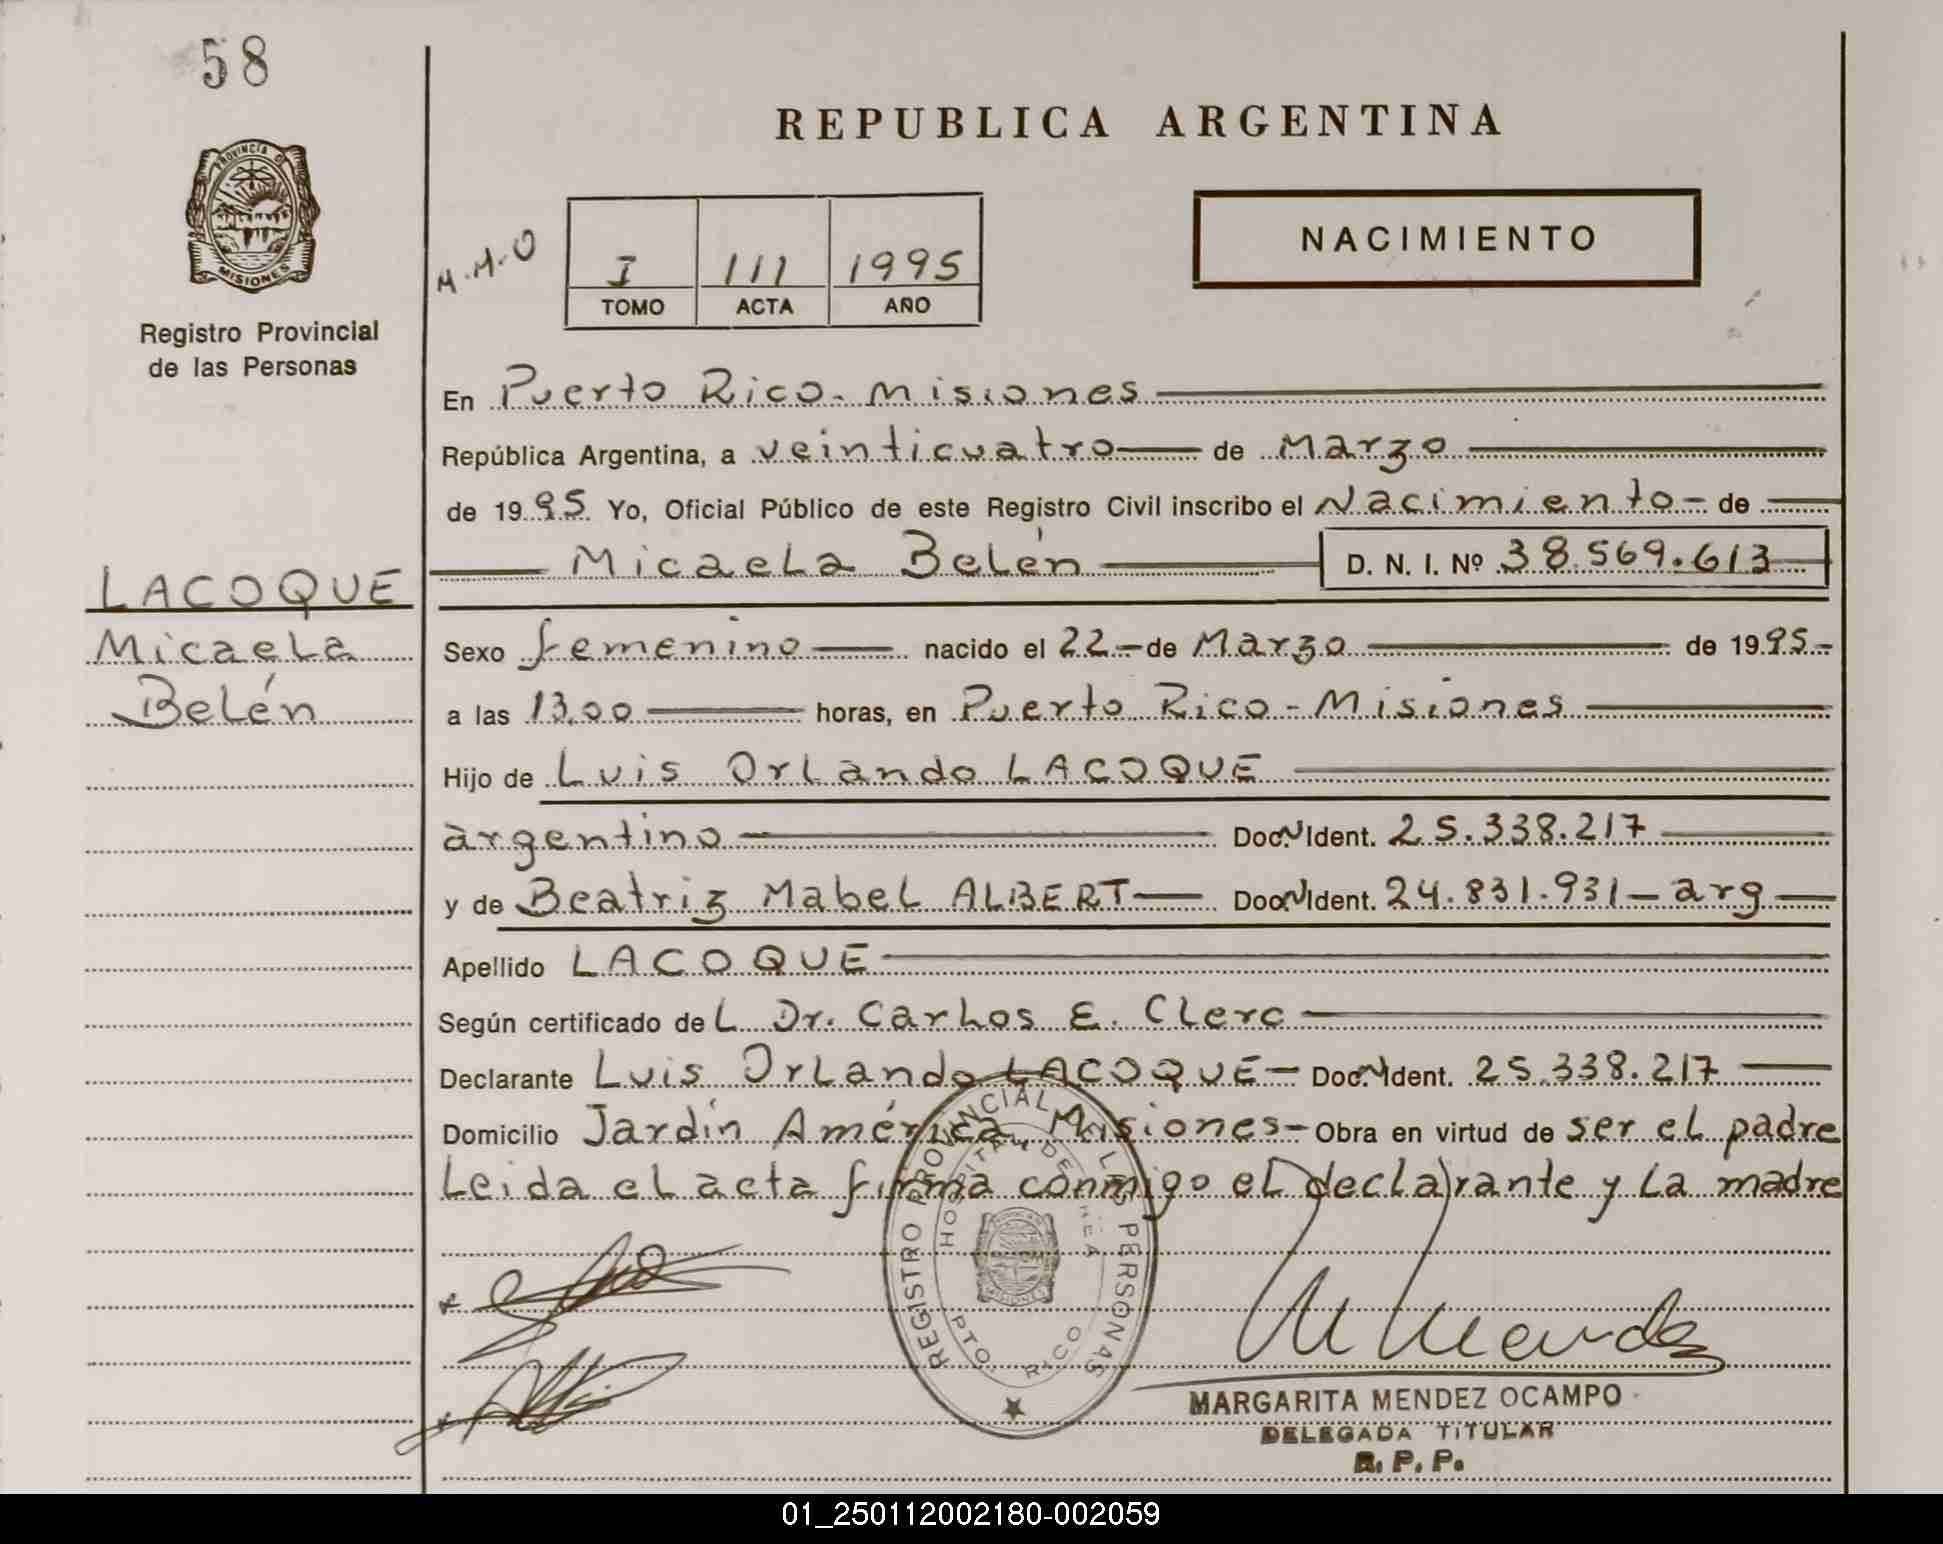 58
REPUBLICA ARGENTINA
PROVINCIA D
MISIONES
Registro Provincial
de las Personas
M.M.O
I 111 1995
TOMO ACTA AÑO
NACIMIENTO
En Puerto Rico - Misiones
República Argentina, a veinticuatro de Marzo
de 1995 Yo, Oficial Público de este Registro Civil inscribo el Nacimiento - de
Micaela Belén D. N. I. Nº 38.569.613
LACOQUE
Micaela
Belén
Sexo femenino nacido el 22 - de Marzo de 1995 -
a las 13,00 horas, en Puerto Rico - Misiones
Hijo de Luis Orlando LACOQUE
argentino Doc. Ident. 25.338.217
y de Beatriz Mabel ALBERT Doc. Ident. 24.831.931 - arg
Apellido LACOQUE
Según certificado del Dr. Carlos E. Clerc
Declarante Luis Orlando LACOQUE - Doc. Ident. 25.338.217
Domicilio Jardín América, Misiones - Obra en virtud de ser el padre
Leida el acta firma conmigo el declarante y la madre
REGISTRO PROVINCIAL DE LAS PERSONAS
HOSPITAL DE
PTO. RICO
MISIONES
M Mendez
MARGARITA MENDEZ OCAMPO
DELEGADA TITULAR
R. P. P.
01_250112002180-002059